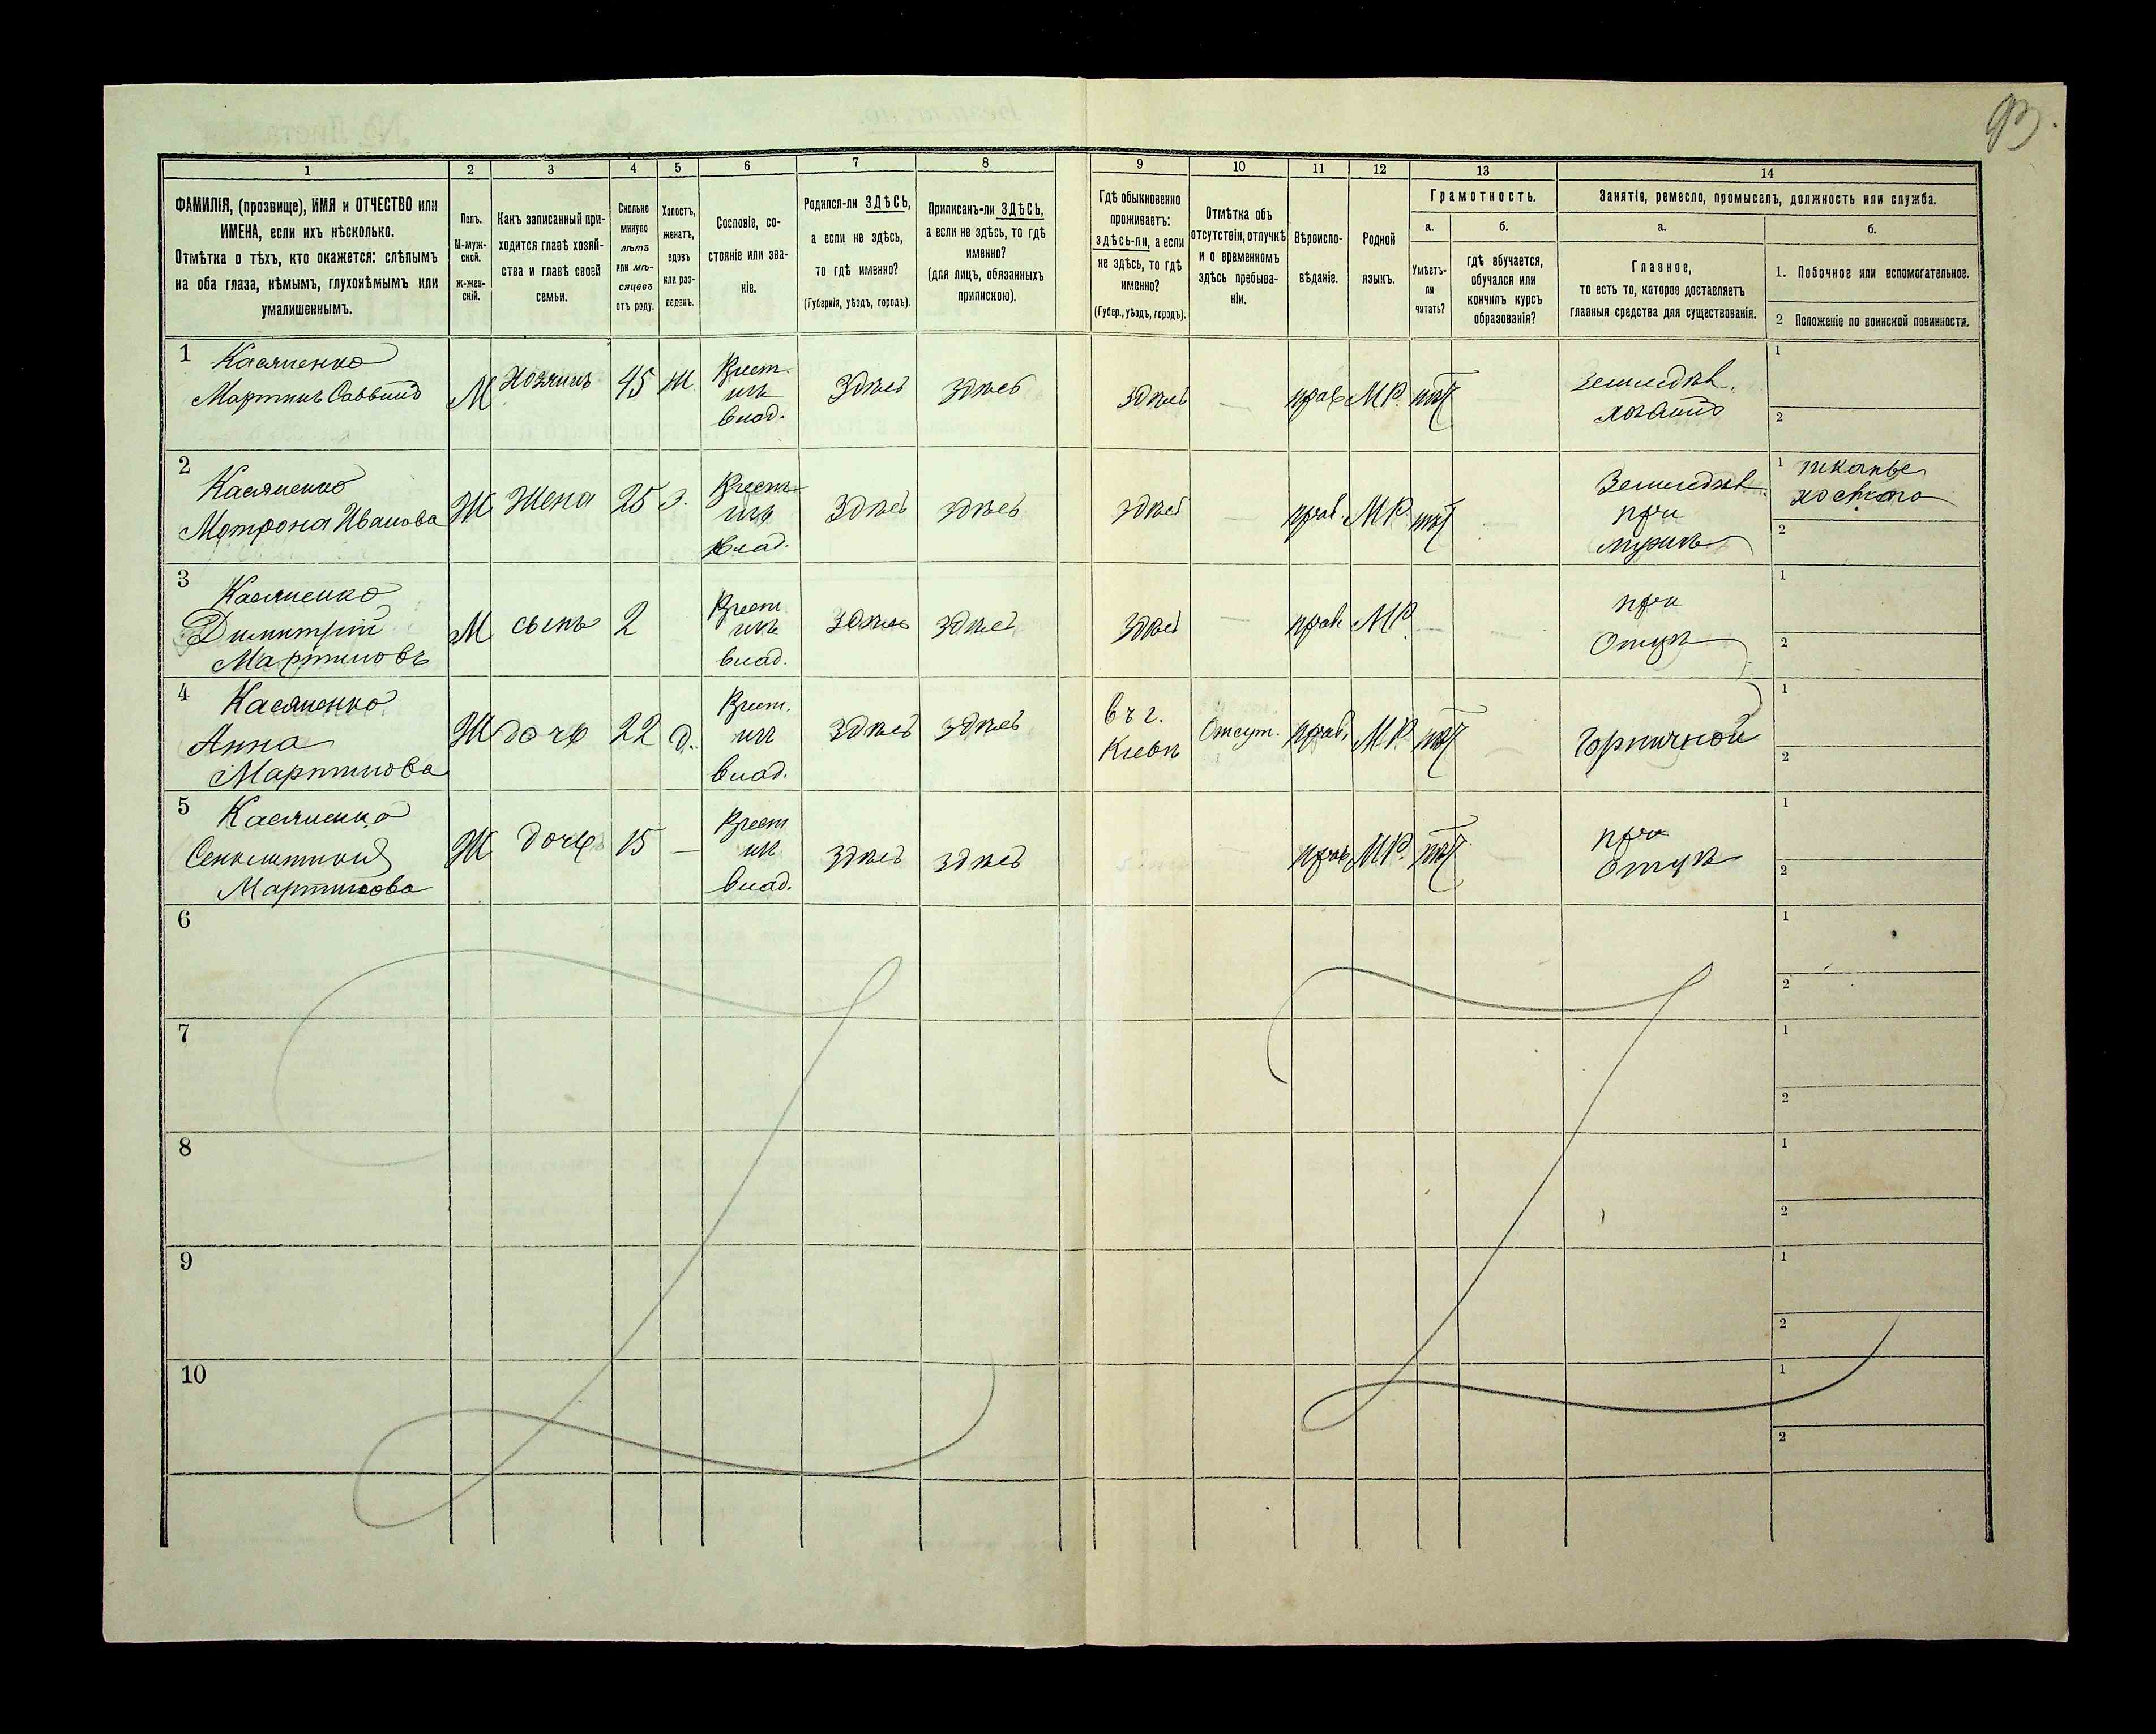 93.
1 2 3 4 5 6 7 8 9 10 11 12 13 14
ФАМИЛІЯ, (прозвище), ИМЯ и ОТЧЕСТВО или
ИМЕНА, если ихъ нѣсколько.
Отмѣтка о тѣхъ, кто окажется: слѣпымъ
на оба глаза, нѣмымъ, глухонѣмымъ или
умалишеннымъ.
Полъ.
М-муж-
ской.
Ж-жен-
скій.
Какъ записанный при-
ходится главѣ хозяй-
ства и главѣ своей
семьи.
Сколько
минуло
лѣтъ
или мѣ-
сяцевъ
отъ роду.
Холостъ,
женатъ,
вдовъ
или раз-
веденъ.
Сословіе, со-
стояніе или зва-
ніе.
Родился-ли ЗДѢСЬ,
а если не здѣсь,
то гдѣ именно?
(Губернія, уѣздъ, городъ).
Приписанъ-ли ЗДѢСЬ,
а если не здѣсь, то гдѣ
именно?
(для лицъ, обязанныхъ
припискою).
Гдѣ обыкновенно
проживаетъ:
здѣсь-ли, а если
не здѣсь, то гдѣ
именно?
(Губер., уѣздъ, городъ).
Отмѣтка объ
отсутствіи, отлучкѣ
и о временномъ
здѣсь пребыва-
ніи.
Вѣроиспо-
вѣданіе.
Родной
языкъ.
Грамотность.
а.
Умѣетъ-
ли
читать?
б.
гдѣ обучается,
обучался или
кончилъ курсъ
образованія?
Занятіе, ремесло, промыселъ, должность или служба.
а.
Главное,
то есть то, которое доставляетъ
главныя средства для существованія.
б.
1. Побочное или вспомогательное.
2 Положеніе по воинской повинности.
1 Касяненко
Мартинъ Саввинъ
М
Хозяинъ
45
Ж
Крест.
изъ
влад.
здѣсь
здѣсь
здѣсь
—
прав
МР.
нѣт
—
Земледѣл.
1
2
2 Касяненко
Мотрона Иванова
Ж
Жена
25
З.
Крест
изъ
влад.
здѣсь
здѣсь
здѣсь
—
прав.
МР.
нѣт
—
Земледѣл.
при
мужѣ
1 тканье
холста
2
3 Касяненко
Димитрий
Мартиновъ
М
сынъ
2
Крест
изъ
влад.
здѣсь
здѣсь
здѣсь
—
прав
МР.
—
—
при
Отцѣ
1
2
4 Касяненко
Анна
Мартинова
Ж
дочь
22
д.
Крест.
изъ
влад.
здѣсь
здѣсь
въ г.
Кіевѣ
Отсут.
прав.
МР.
нѣт
—
Горничной
1
2
5 Касяненко
Мартинова
Ж
дочь
15
—
Крест
изъ
влад.
здѣсь
здѣсь
прав
МР.
нѣт
—
при
Отцѣ
1
2
6
1
2
7
1
2
8
1
2
9
1
2
10
1
2